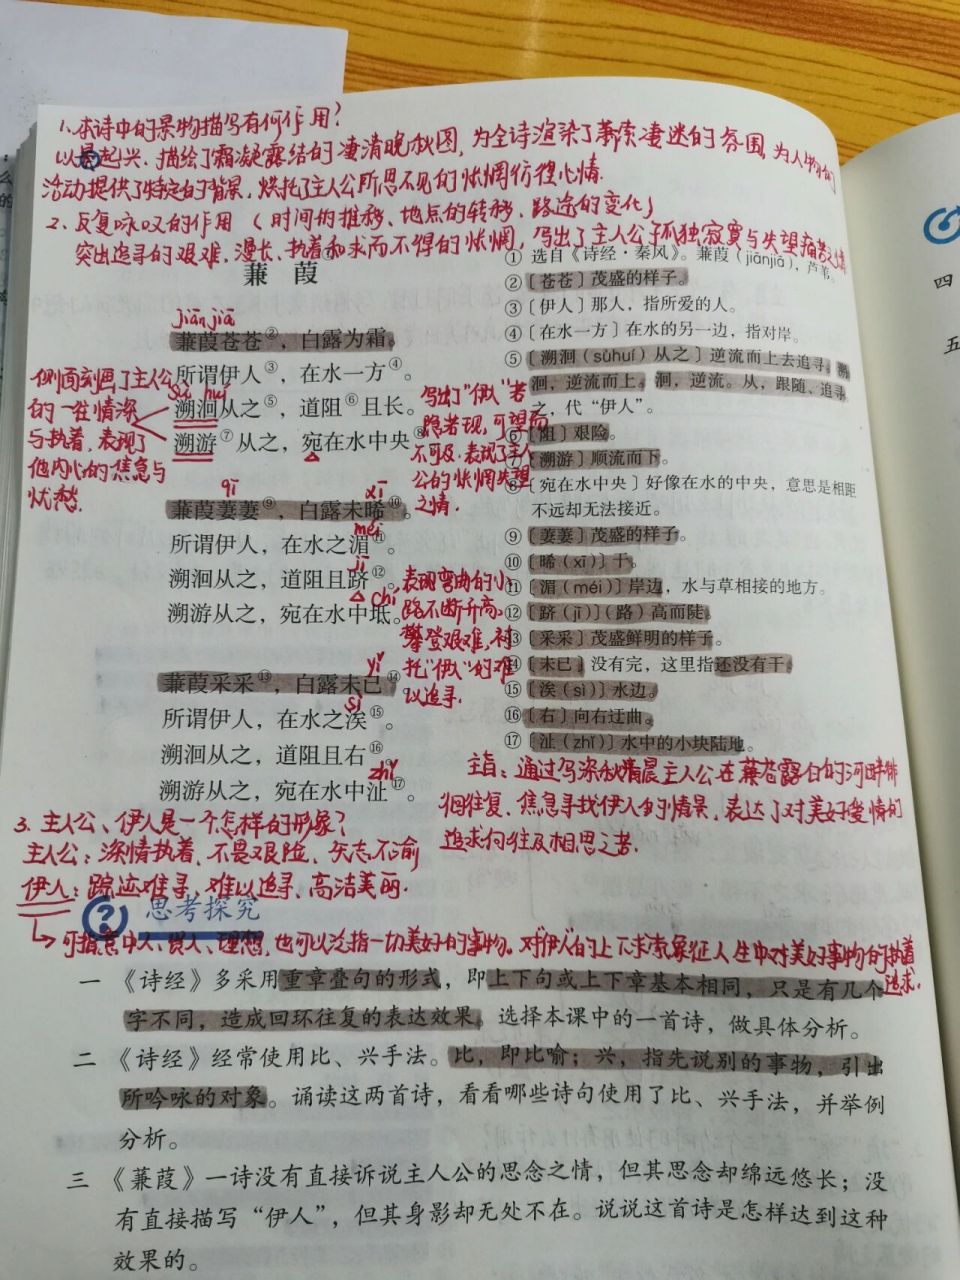 1、本诗中的景物描写有何作用？
以景起兴、描绘了霜凝露结的凄清晚秋图，为全诗渲染了萧索凄迷的氛围，为人物的
活动提供了特定的背景，烘托了主人公所思不见的怅惘彷徨心情.
2、反复咏叹的作用（时间的推移、地点的转移、路途的变化）
突出追寻的艰难、漫长、执着和求而不得的怅惘，写出了主人公孤独寂寞与失望痛苦之情
蒹葭①
jiān jiā
蒹葭苍苍②，白露为霜。
所谓伊人③，在水一方④。
sù huí
溯洄从之⑤，道阻⑥且长。
溯游⑦从之，宛在水中央⑧。
侧面刻画了主人公
的一往情深
与执着，表现了
他内心的焦急与
忧愁.
写出了“伊人”若
隐若现，可望而
不可及，表现了主人
公的怅惘失望
之情.
qī xī
蒹葭萋萋⑨，白露未晞⑩。
méi
所谓伊人，在水之湄⑪。
jī
溯洄从之，道阻且跻⑫。
chí
溯游从之，宛在水中坻。
表现弯曲的小
路不断升高，
攀登艰难，衬
托“伊人”的难
以追寻.
yǐ
蒹葭采采⑬，白露未已⑭。
sì
所谓伊人，在水之涘⑮。
溯洄从之，道阻且右⑯。
zhǐ
溯游从之，宛在水中沚⑰。
①选自《诗经·秦风》。蒹葭（jiānjiā），芦苇。
②〔苍苍〕茂盛的样子。
③〔伊人〕那人，指所爱的人。
④〔在水一方〕在水的另一边，指对岸。
⑤〔溯洄（sùhuí）从之〕逆流而上去追寻。溯
洄，逆流而上。洄，逆流。从，跟随、追寻
之，代“伊人”。
⑥〔阻〕艰险。
⑦〔溯游〕顺流而下。
⑧〔宛在水中央〕好像在水的中央，意思是相距
不远却无法接近。
⑨〔萋萋〕茂盛的样子。
⑩〔晞（xī）〕干。
⑪〔湄（méi）〕岸边，水与草相接的地方。
⑫〔跻（jī）〕（路）高而陡。
⑬〔采采〕茂盛鲜明的样子。
⑭〔未已〕没有完，这里指还没有干。
⑮〔涘（sì）〕水边。
⑯〔右〕向右迂曲。
⑰〔沚（zhǐ）〕水中的小块陆地。
主旨：通过写深秋清晨主人公在蒹苍露白的河畔徘
徊往复、焦急寻找伊人的情景，表达了对美好爱情的
追求向往及相思之苦.
3、主人公、伊人是一个怎样的形象？
主人公：深情执着、不畏艰险、矢志不渝
伊人：踪迹难寻，难以追寻、高洁美丽.
思考探究
可指意中人、贤人、理想，也可以泛指一切美好的事物。对“伊人”的上下求索象征人生中对美好事物的执着
追求.
一 《诗经》多采用重章叠句的形式，即上下句或上下章基本相同，只是有几个
字不同，造成回环往复的表达效果。选择本课中的一首诗，做具体分析。
二 《诗经》经常使用比、兴手法。比，即比喻；兴，指先说别的事物，引出
所吟咏的对象。诵读这两首诗，看看哪些诗句使用了比、兴手法，并举例
分析。
三 《蒹葭》一诗没有直接诉说主人公的思念之情，但其思念却绵远悠长；没
有直接描写“伊人”，但其身影却无处不在。说说这首诗是怎样达到这种
效果的。
四
五